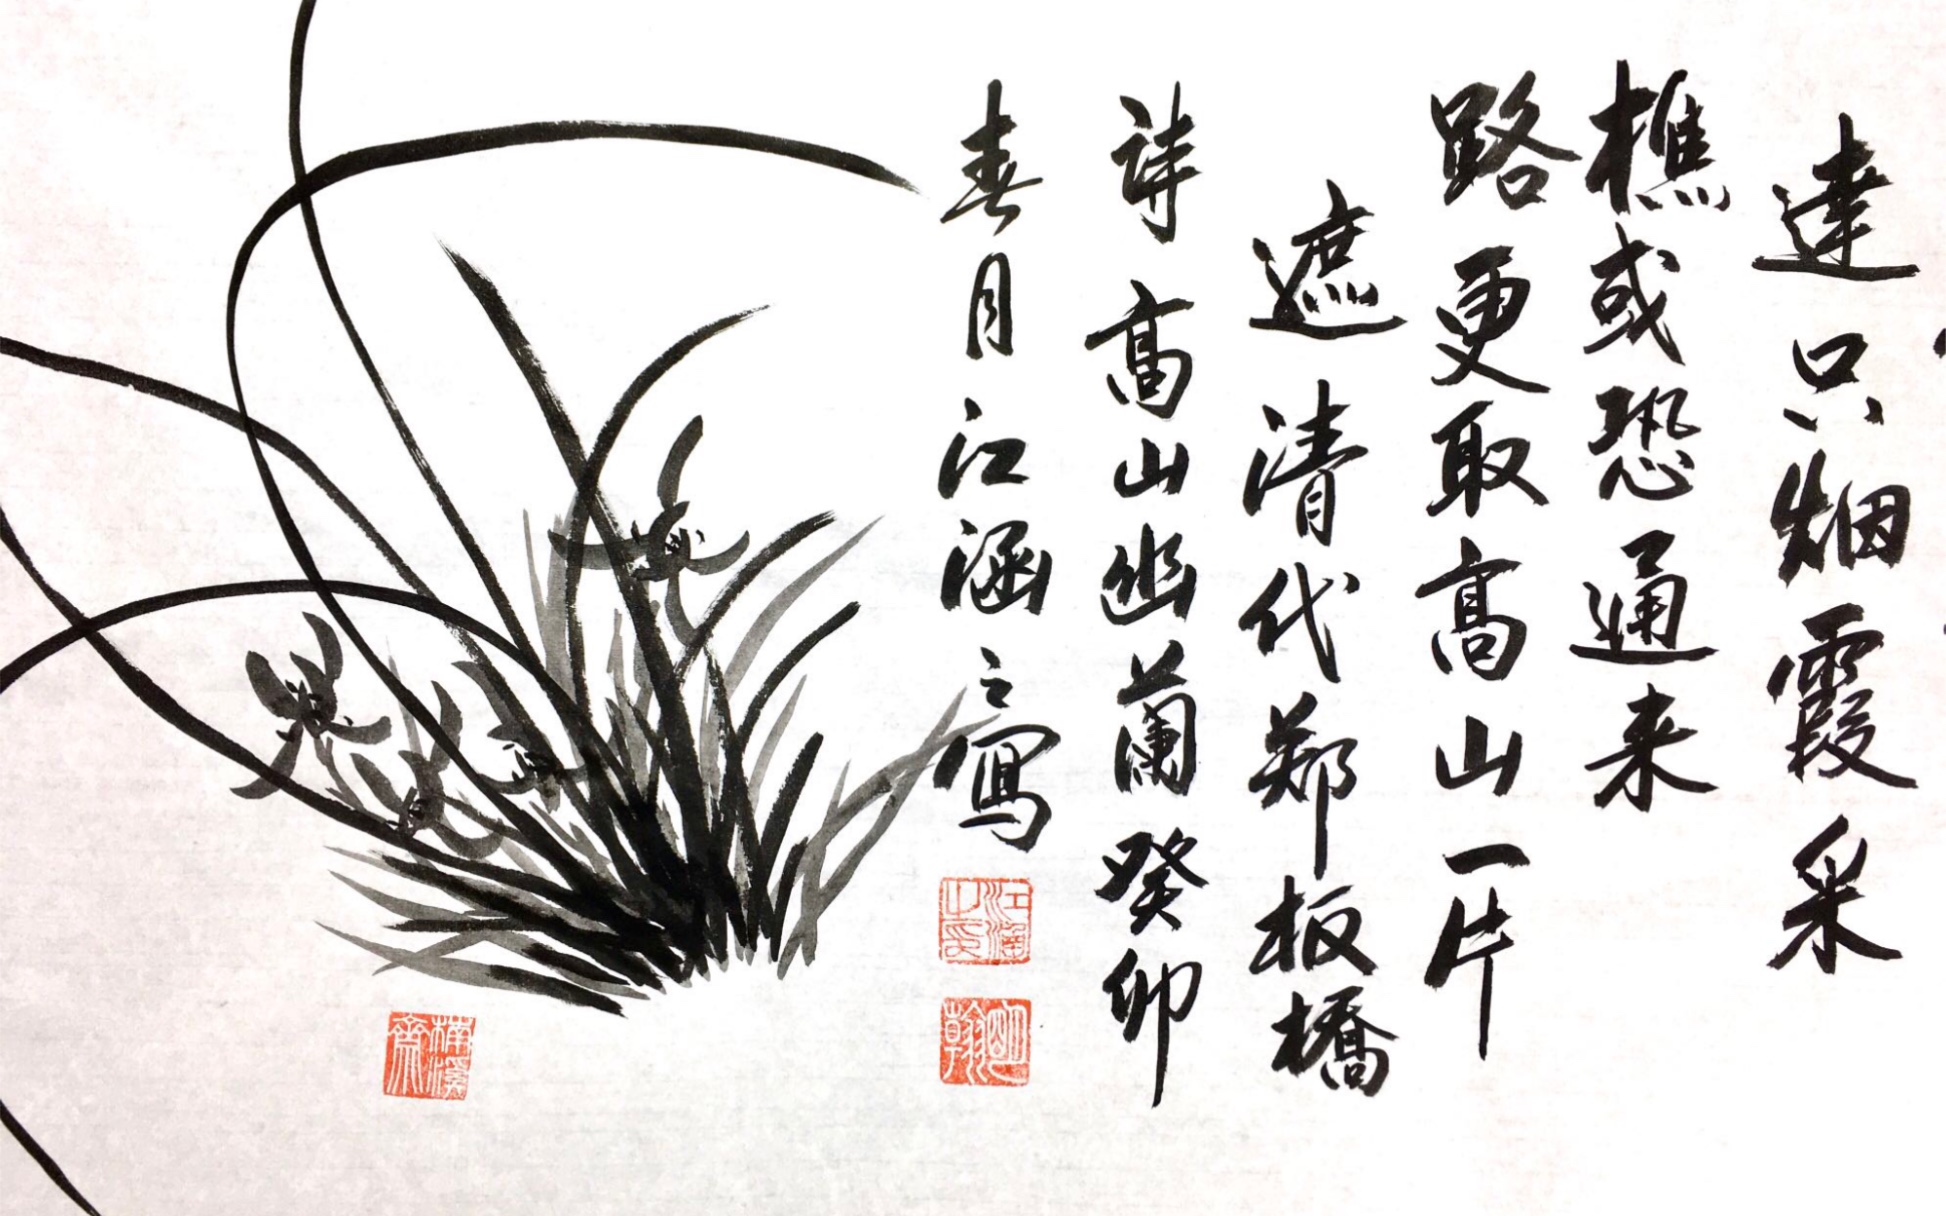 達只烟霞采
樵或恐通来
路更取高山一片
遮清代郑板橋
詩高山幽蘭癸卯
春月江涵之寫
江涵之印
楠溪齋